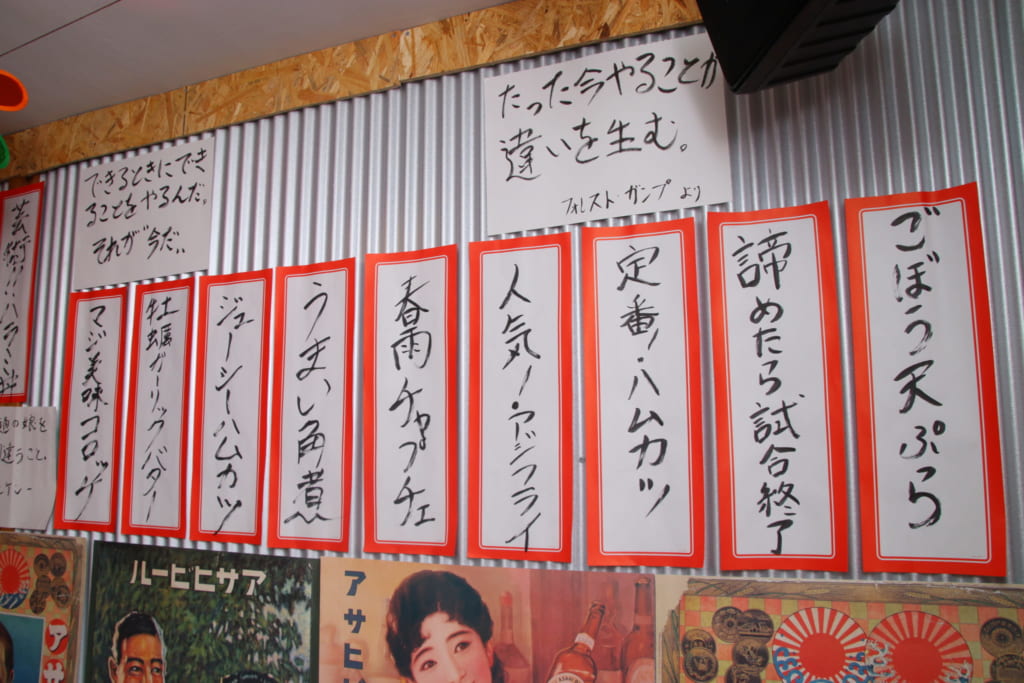 たった今やることが
違いを生む。
フォレスト・ガンプより
できるときにでき
ることをやるんだ。
それが"今だ"
ごぼう天ぷら
諦めたら試合終了
定番！・ハムカツ
人気！・アジフライ
春雨チャプチェ
うまい角煮
ジューシーハムカツ
牡蠣ガーリックバター
マジ美味コロッケ
芸術!!ハラミ
の娘を
違うこと。
アサヒビール
アサヒ
アサ